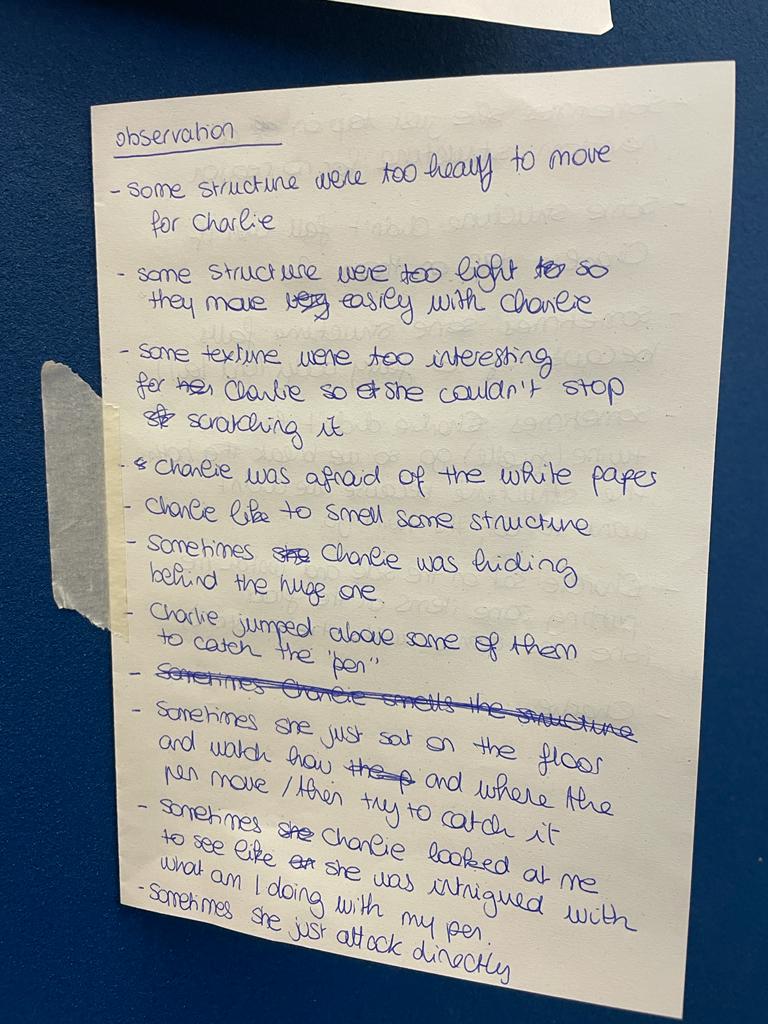 observation
- some structure were too heavy to move
for Charlie
- some structure were too light to so
they move very easily with charlie
- some texture were too interesting
for her Charlie so she couldn't stop
scratching it
- s Charlie was afraid of the white paper
- Charlie like to smell some structure
- Sometimes she Charlie was hiding
behind the huge one
- Charlie jumped above some of them
to catch the "pen"
- Sometimes Charlie smells the structure
- Sometimes she just sat on the floor
and watch how the p and where the
pen move / then try to catch it
- Sometimes she Charlie looked at me
to see like she was intrigued with
what am I doing with my pen.
- Sometimes she just attack directly